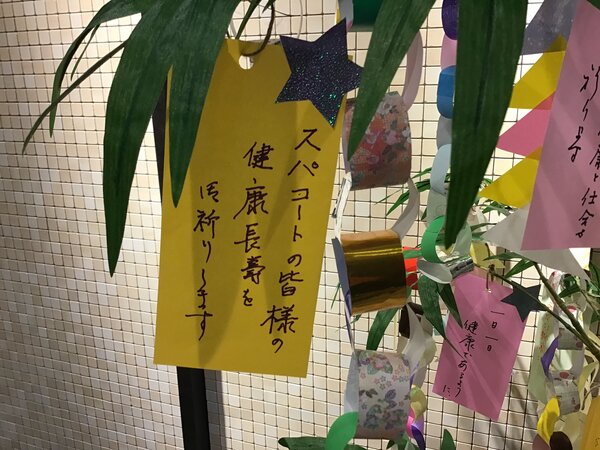 スパコートの皆様の
健康長寿を
御祈りします
康と仕合せ
祈ります
一日一日
健康でありますように